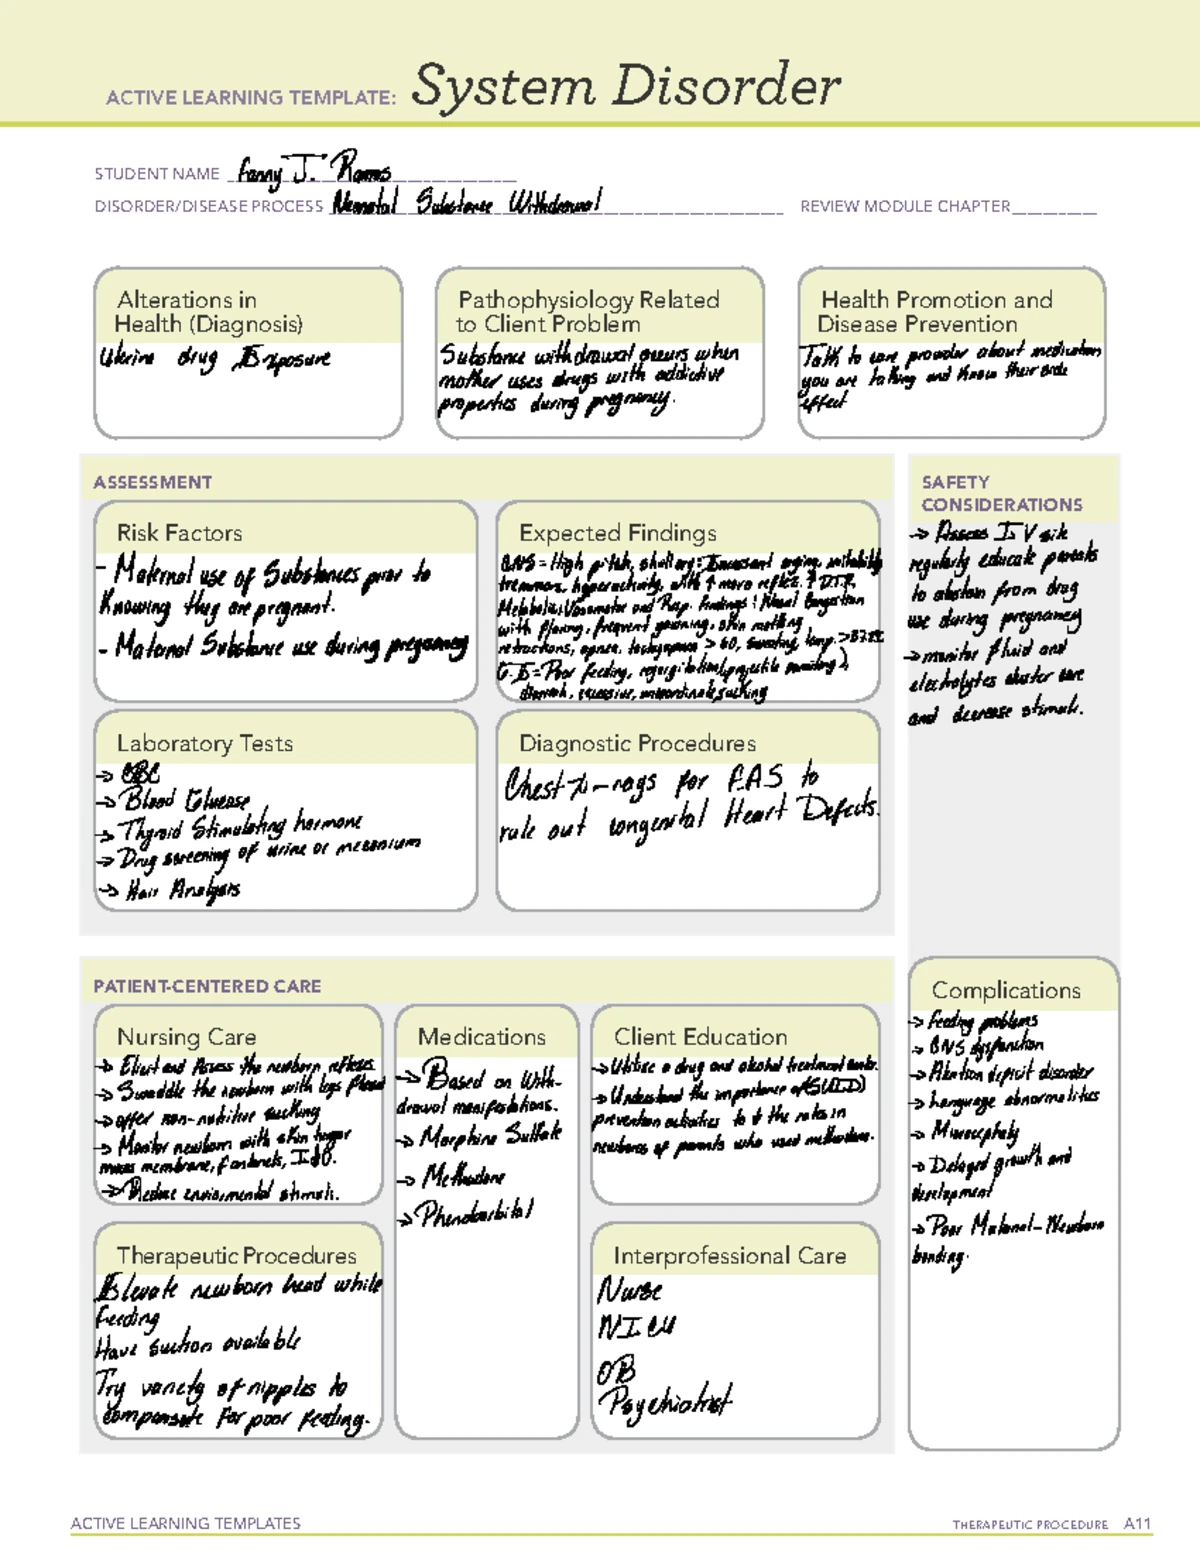 ACTIVE LEARNING TEMPLATE: System Disorder
STUDENT NAME Fanny J. Ramos
DISORDER/DISEASE PROCESS Neonatal Substance Withdrawal REVIEW MODULE CHAPTER
Alterations in
Health (Diagnosis)
Uterine drug Exposure
Pathophysiology Related
to Client Problem
Substance withdrawal occurs when
mother uses drugs with addictive
properties during pregnancy.
Health Promotion and
Disease Prevention
Talk to care provider about medication
you are talking and know their side
effect
ASSESSMENT
Risk Factors
- Maternal use of Substances prior to
Knowing they are pregnant.
- Maternal Substance use during pregnancy
Expected Findings
CNS = High pitch, shrill cry: Incessant crying, irritability
tremmors, hyperactivity, with ↑ moro reflex. ↑ D.T.R
Metabolic/Vasomotor and Resp. Findings: Nasal Congestion
with flaring, frequent yawning, skin mottling
retractions, apnea, tachypnea > 60, sweating, temp. >
G.I = Poor feeding, regurgitation(projectile vomiting),
diarrhea, excessive, uncoordinate, sucking
SAFETY
CONSIDERATIONS
→ Assess IV site
regularly educate parents
to abstain from drug
use during pregnancy
→ monitor fluid and
electrolytes cluster care
and decrease stimuli.
Laboratory Tests
→ CBC
→ Blood Glucose
→ Thyroid Stimulating hormone
→ Drug screening of urine or meconium
→ Hair Analysis
Diagnostic Procedures
Chest x-rays for F.A.S to
rule out congenital Heart Defects.
PATIENT-CENTERED CARE
Nursing Care
→ Elicit and Assess the newborn reflexes
→ Swaddle the newborn with legs flexed
→ offer non-nutritive sucking
→ Monitor newborn with skin turgor
mucus membrane, fontanels, I&O.
→ Reduce enviormental stimuli.
Medications
→ Based on With-
drawal manifestations.
→ Morphine Sulfate
→ Methadone
→ Phenobarbital
Client Education
→ Utilize a drug and alcohol treatment center.
→ Understand the importance of (SUID)
prevention activities to ↓ the rates in
newborns of parents who used methadone.
Complications
→ Feeding problems
→ CNS dysfunction
→ Attention deficit disorder
→ Language abnormalities
→ Microcephaly
→ Delayed growth and
development
→ Poor Maternal-Newborn
bonding.
Therapeutic Procedures
Elevate newborn head while
Feeding
Have suction available
Try variety of nipples to
compensate for poor feeding.
Interprofessional Care
Nurse
NICU
OB
Psychiatrist
ACTIVE LEARNING TEMPLATES
THERAPEUTIC PROCEDURE A11